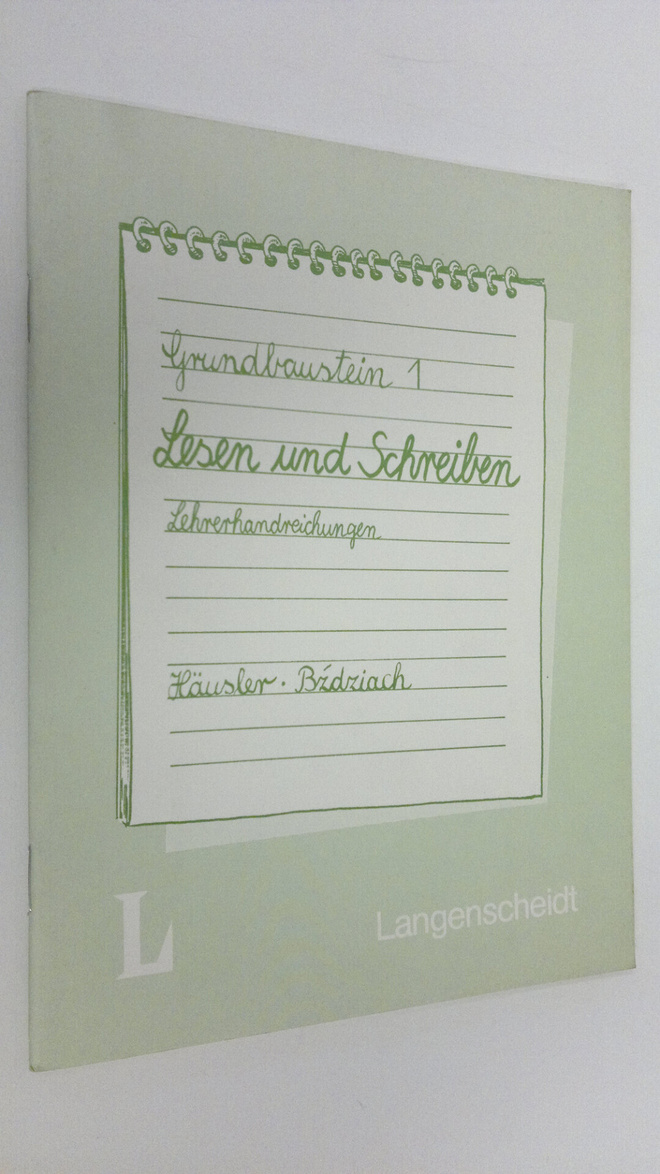 Grundbaustein 1
Lesen und Schreiben
Lehrerhandreichungen
Häusler · Bździach
L
Langenscheidt